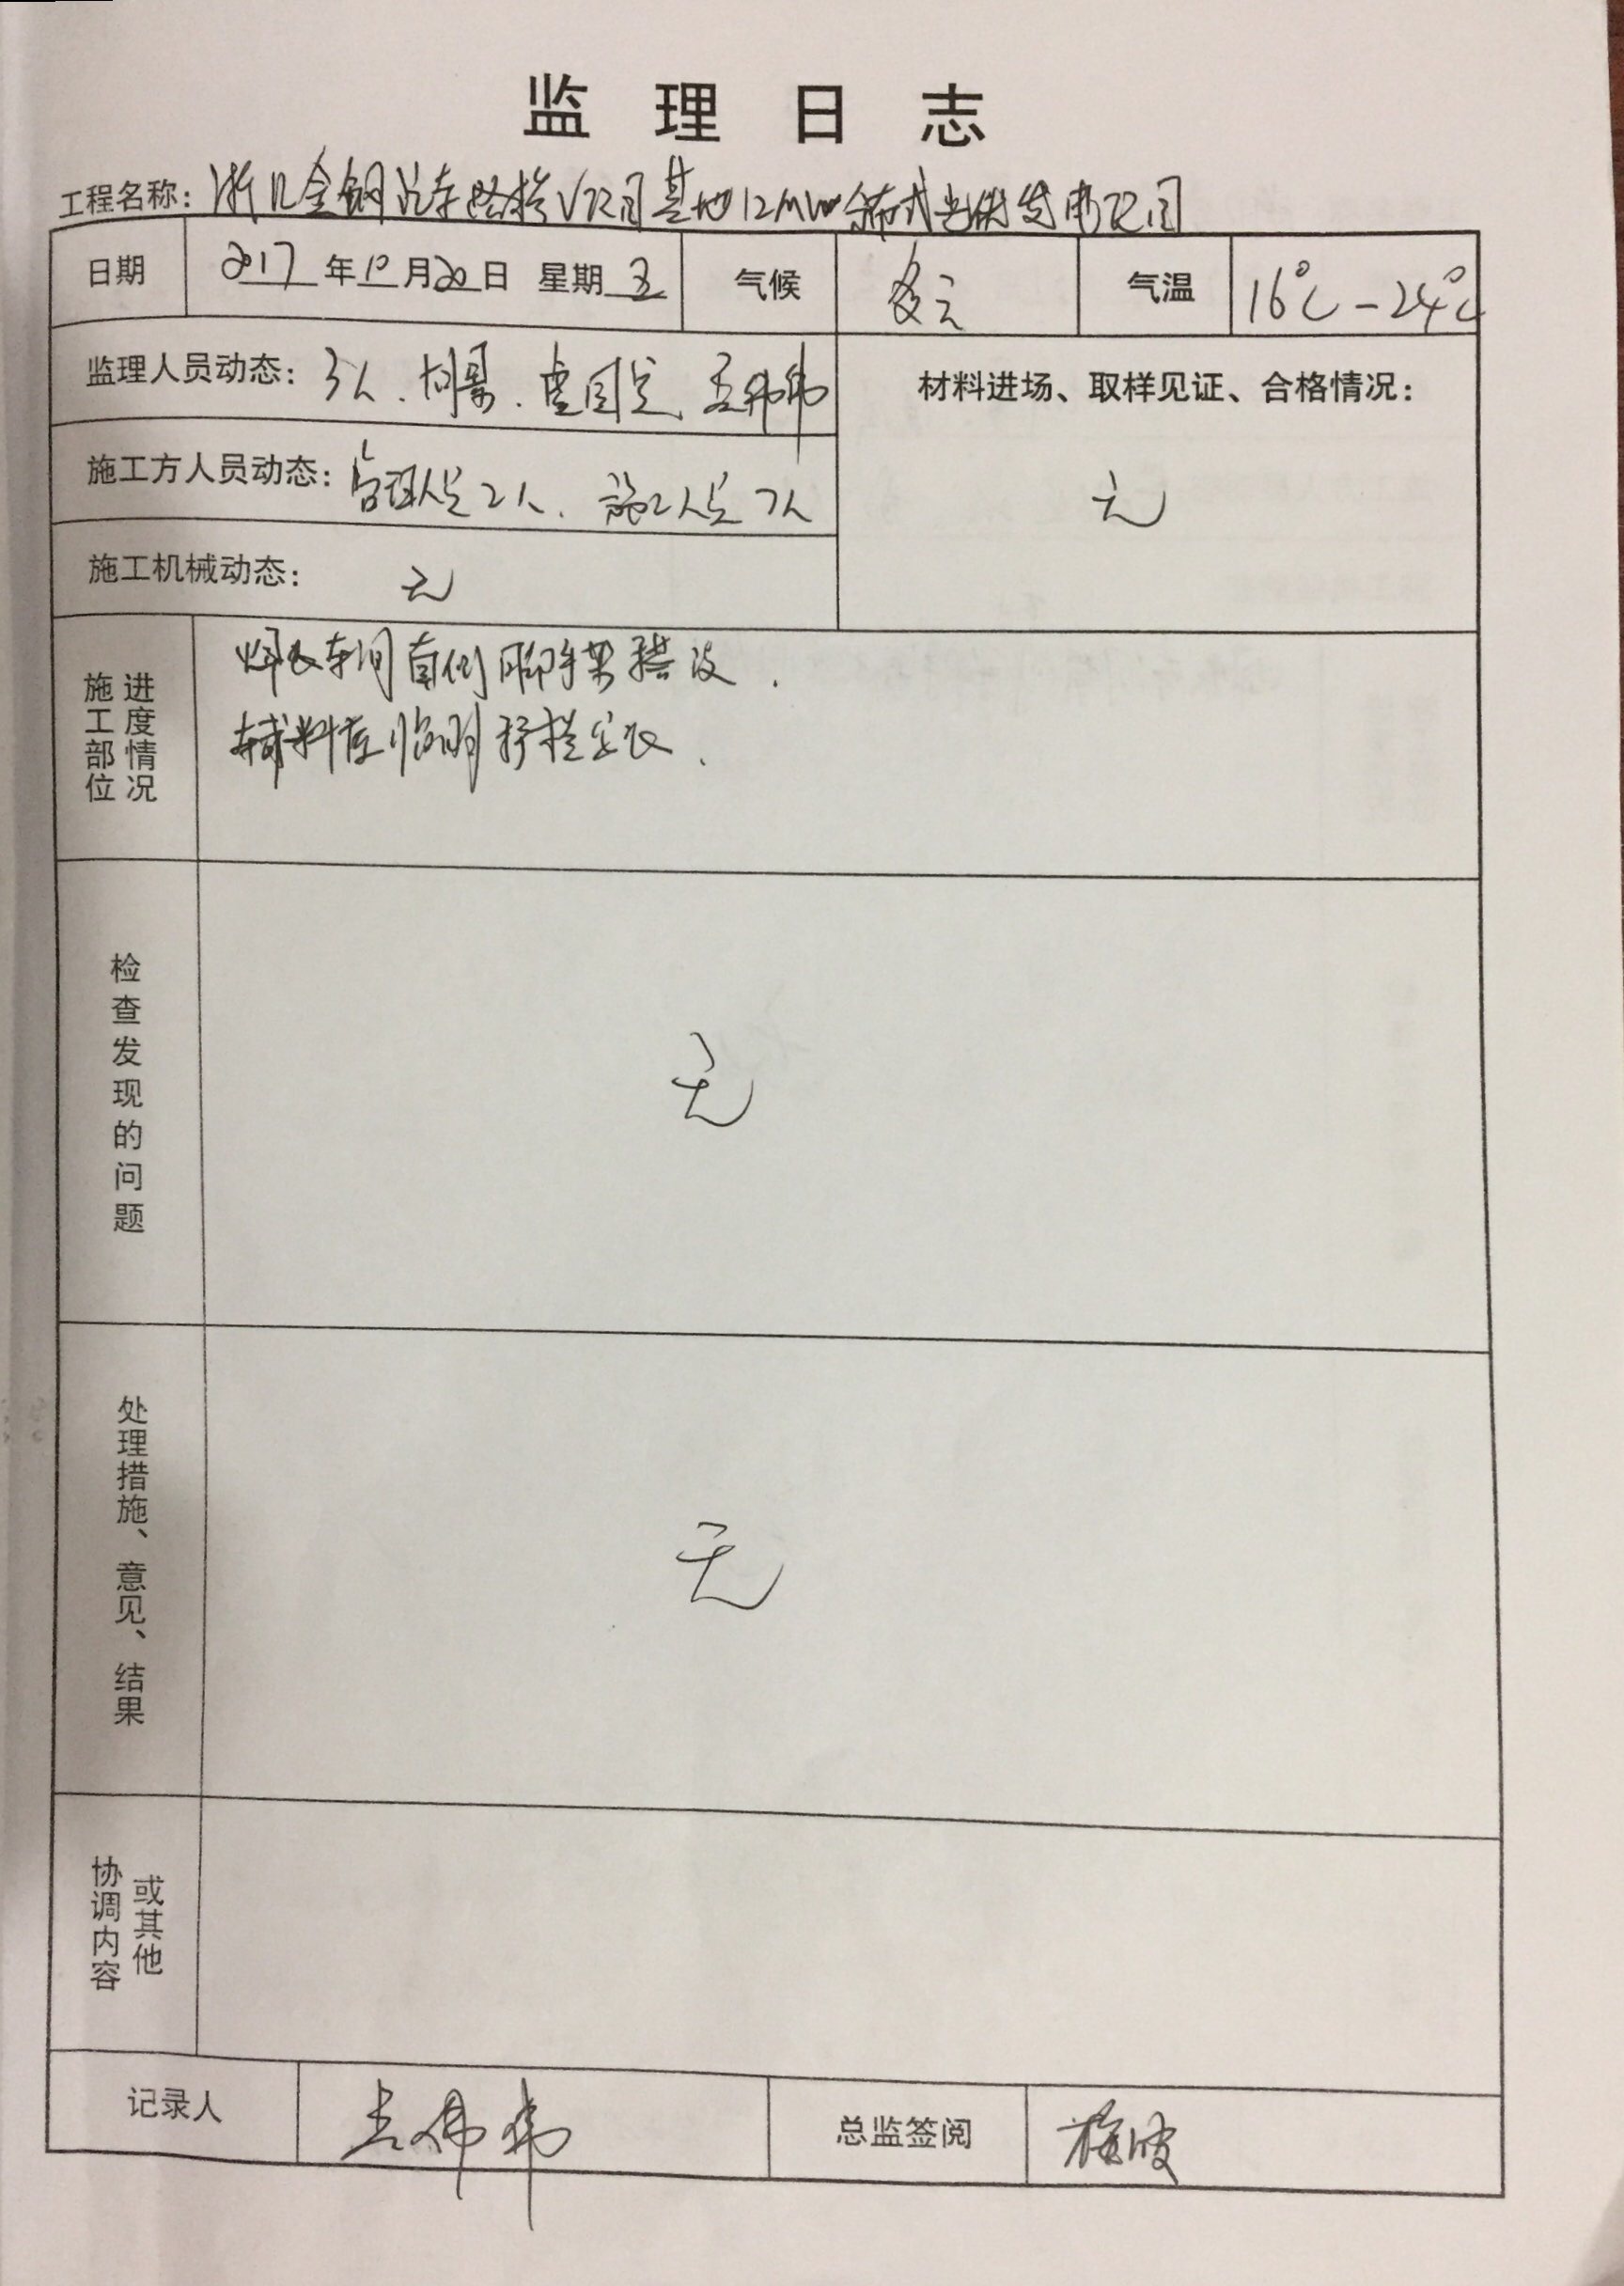 监理日志
工程名称：浙江金钢汽车路桥V项目基地12MW分布式光伏发电项目
日期 2017年10月20日 星期五 气候 多云 气温 16℃-24℃
监理人员动态：3人、
材料进场、取样见证、合格情况：
无
施工方人员动态：管理人员2人、施工人员7人
施工机械动态：无
施工部位 进度情况
焊装车间南侧脚手架搭设.
辅料库临时护栏安装.
检查发现的问题
无
处理措施、意见、结果
无
协调内容 或其他
记录人 总监签阅